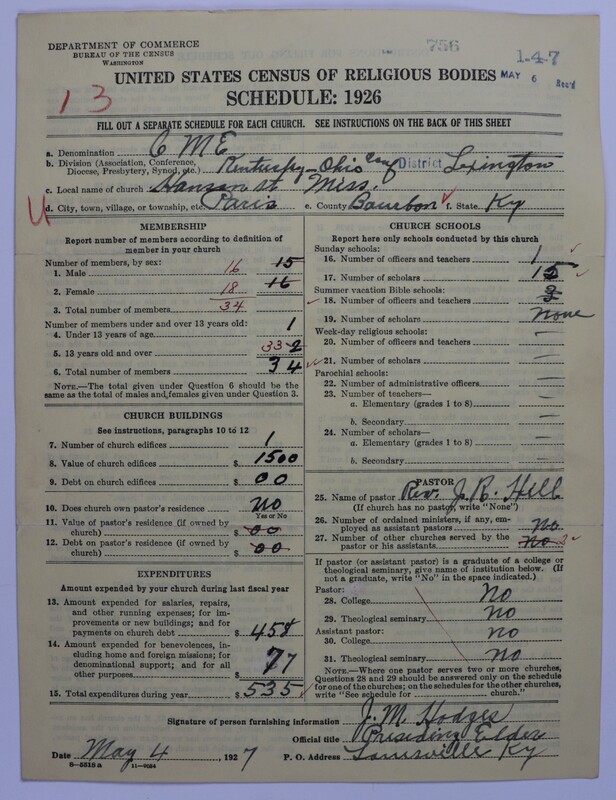 DEPARTMENT OF COMMERCE
BUREAU OF THE CENSUS
WASHINGTON
756
147
MAY 6 Rec'd
13
UNITED STATES CENSUS OF RELIGIOUS BODIES
SCHEDULE: 1926
FILL OUT A SEPARATE SCHEDULE FOR EACH CHURCH. SEE INSTRUCTIONS ON THE BACK OF THIS SHEET
a. Denomination C M E
b. Division (Association, Conference, Diocese, Presbytery, Synod, etc.) Kentucky-Ohio Conf District Lexington
c. Local name of church Hanson st. Miss.
d. City, town, village, or township, etc. Paris e. County Bourbon f. State Ky
MEMBERSHIP
Report number of members according to definition of member in your church
Number of members, by sex:
1. Male 16 15
2. Female 18 16
3. Total number of members 34
Number of members under and over 13 years old:
4. Under 13 years of age 1
5. 13 years old and over 33 2
6. Total number of members 34
NOTE.—The total given under Question 6 should be the same as the total of males and females given under Question 3.
CHURCH BUILDINGS
See instructions, paragraphs 10 to 12
7. Number of church edifices 1
8. Value of church edifices $ 1500
9. Debt on church edifices $ 00
10. Does church own pastor's residence No
Yes or No
11. Value of pastor's residence (if owned by church) $ 00
12. Debt on pastor's residence (if owned by church) $ 00
EXPENDITURES
Amount expended by your church during last fiscal year
13. Amount expended for salaries, repairs, and other running expenses; for improvements or new buildings; and for payments on church debt $ 458
14. Amount expended for benevolences, including home and foreign missions; for denominational support; and for all other purposes $ 77
15. Total expenditures during year $ 535
CHURCH SCHOOLS
Report here only schools conducted by this church
Sunday schools:
16. Number of officers and teachers 1
17. Number of scholars 15
Summer vacation Bible schools:
18. Number of officers and teachers
19. Number of scholars None
Week-day religious schools:
20. Number of officers and teachers —
21. Number of scholars —
Parochial schools:
22. Number of administrative officers —
23. Number of teachers—
a. Elementary (grades 1 to 8) —
b. Secondary —
24. Number of scholars—
a. Elementary (grades 1 to 8) —
b. Secondary —
PASTOR
25. Name of pastor Rev. J. R. Hill
(If church has no pastor, write "None")
26. Number of ordained ministers, if any, employed as assistant pastors No
27. Number of other churches served by the pastor or his assistants No 2
If pastor (or assistant pastor) is a graduate of a college or theological seminary, give name of institution below. (If not a graduate, write "No" in the space indicated.)
Pastor:
28. College No
29. Theological seminary No
Assistant pastor:
30. College No
31. Theological seminary No
NOTE.—Where one pastor serves two or more churches, Questions 28 and 29 should be answered only on the schedule for one of the churches; on the schedules for the other churches, write "See schedule for church."
Signature of person furnishing information J. M. Hodges
Official title Presiding Elder
Date May 4, 1927 P. O. Address Louisville Ky
8-5518 a 11-9024